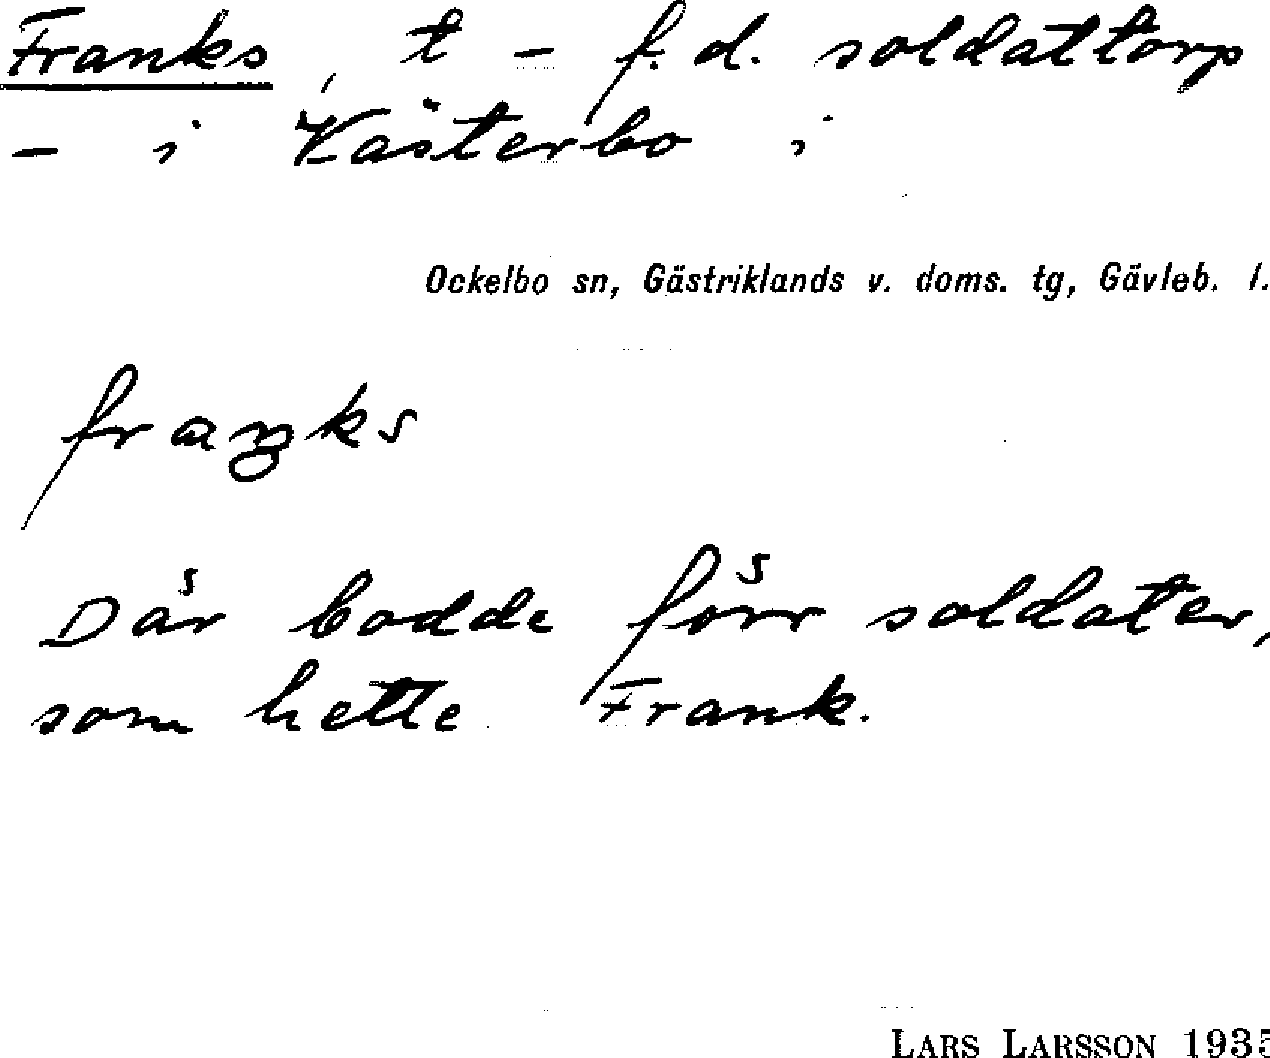 Franks, t - f.d. soldattorp
- i Västerbo i
Ockelbo sn, Gästriklands v. doms. tg, Gävleb. l.
fraŋks
Där bodde förr soldater,
som hette Frank.
LARS LARSSON 1935